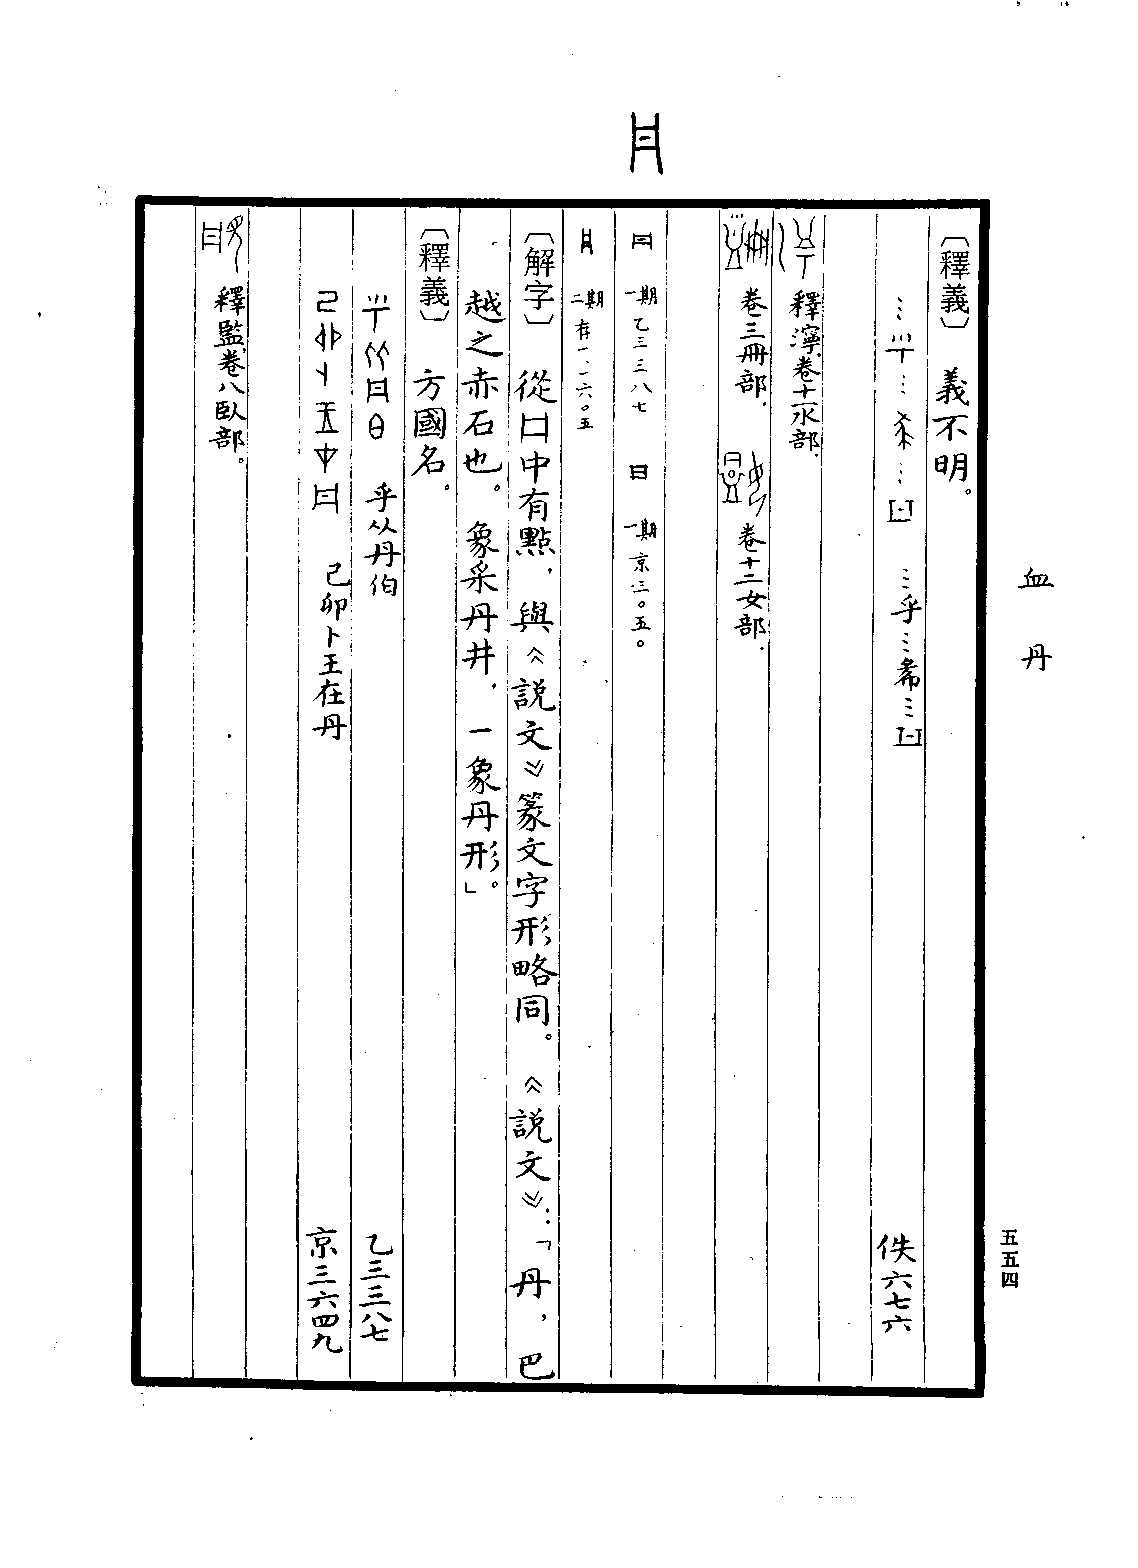 血 丹
五五四
〔釋義〕 義不明。
…乎…㣇…凵 佚六七六
釋濘，卷十一水部。
卷三冊部。 卷十二女部。
一期 乙三三八七 一期 京三〇五〇
二期 存一·一六〇五
〔解字〕 從口中有點，與《説文》篆文字形略同。《説文》：「丹，巴
越之赤石也。象采丹井，一象丹形。」
〔釋義〕 方國名。
乎从丹伯 乙三三八七
己卯卜王在丹 京三六四九
釋監，卷八臥部。